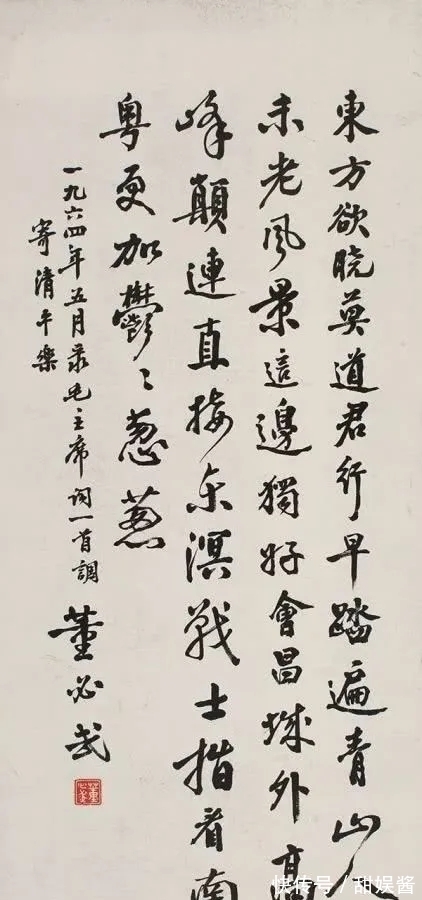 東方欲晓莫道君行早踏遍青山人
未老風景這邊獨好會昌城外高
峰顛連直接东溟戰士指看南
粤更加鬱〻葱葱
一九六四年五月录毛主席词一首調
寄清平樂
董必武
董必武
快传号/甜娱酱